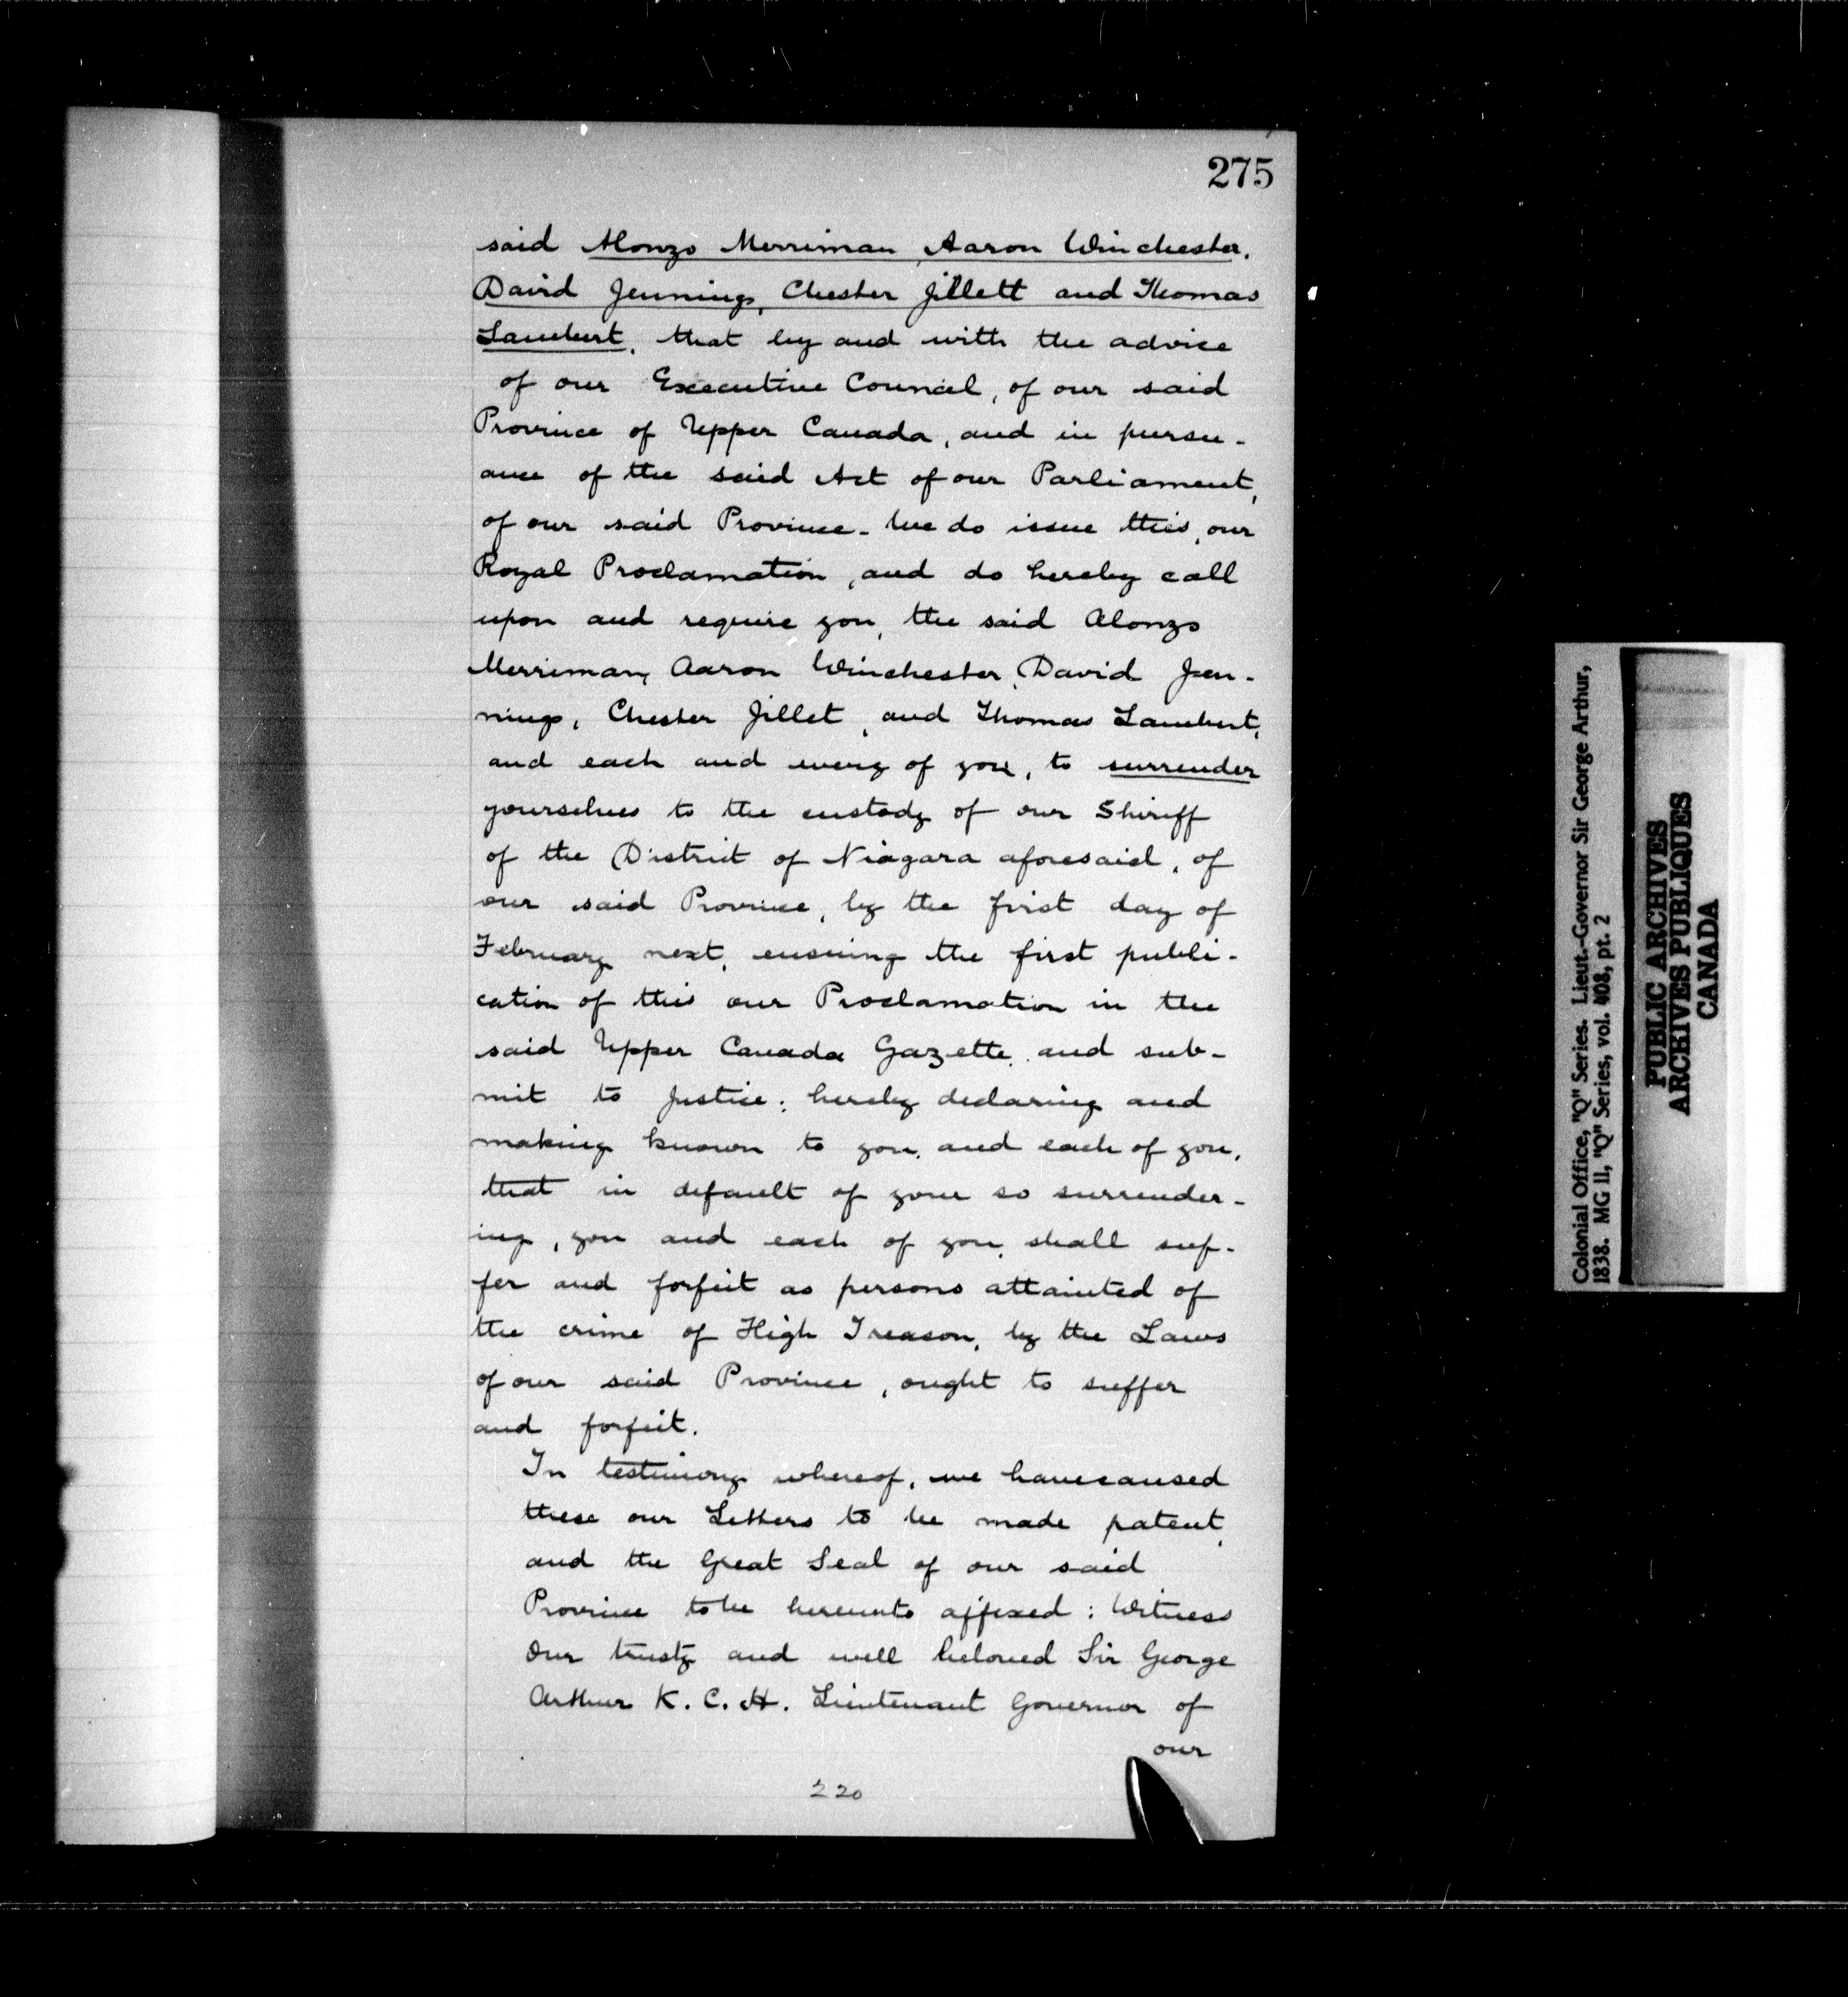 275
said Alonzo Merriman, Aaron Winchester,
David Jennings, Chester Jillett and Thomas
Lambert, that by and with the advice
of our Executive Council, of our said
Province of Upper Canada, and in pursu-
ance of the said Act of our Parliament,
of our said Province - We do issue this, our
Royal Proclamation, and do hereby call
upon and require you, the said Alonzo
Merriman, Aaron Winchester, David Jen-
nings, Chester Jillet, and Thomas Lambert,
and each and every of you, to surrender
yourselves to the custody of our Sheriff
of the District of Niagara aforesaid, of
our said Province, by the first day of
February next, ensuing the first publi-
cation of this our Proclamation in the
said Upper Canada Gazette, and sub-
mit to Justice: hereby declaring and
making known to you, and each of you,
that in default of your so surrender-
ing, you and each of you, shall suf-
fer and forfeit as persons attainted of
the crime of High Treason, by the Laws
of our said Province, ought to suffer
and forfeit.
In testimony whereof, we have caused
these our Letters to be made patent,
and the Great Seal of our said
Province to be hereunto affixed: Witness
Our trusty and well beloved Sir George
Arthur K. C. H. Lieutenant Governor of
our
220
Colonial Office, "Q" Series. Lieut.-Governor Sir George Arthur,
1838. MG 11, "Q" Series, vol. 408, pt. 2
PUBLIC ARCHIVES
ARCHIVES PUBLIQUES
CANADA